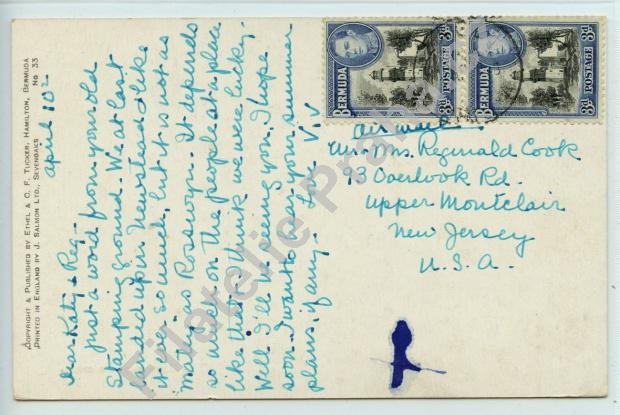 COPYRIGHT & PUBLISHED BY ETHEL & C. F. TUCKER, HAMILTON, BERMUDA
PRINTED IN ENGLAND BY J. SALMON LTD., SEVENOAKS
No 33
April 10th
Dear Katy & Reg -
Just a word from your old
Stamping ground. We at last
landed up in Newstead & like
it ever so much, but it is not as
as Rosswyn. It depends
so much on the people at a place
like that. I think we were lucky.
Well I'll be seeing you, I hope
soon. I want to hear your summer
plans, if any. Love Viv
BERMUDA
POSTAGE
3d
3d
BERMUDA
POSTAGE
3d
3d
air mail
Mr. Mrs. Reginald Cook
93 Overlook Rd.
Upper Montclair
New Jersey
U.S.A.
Filatelie Praha